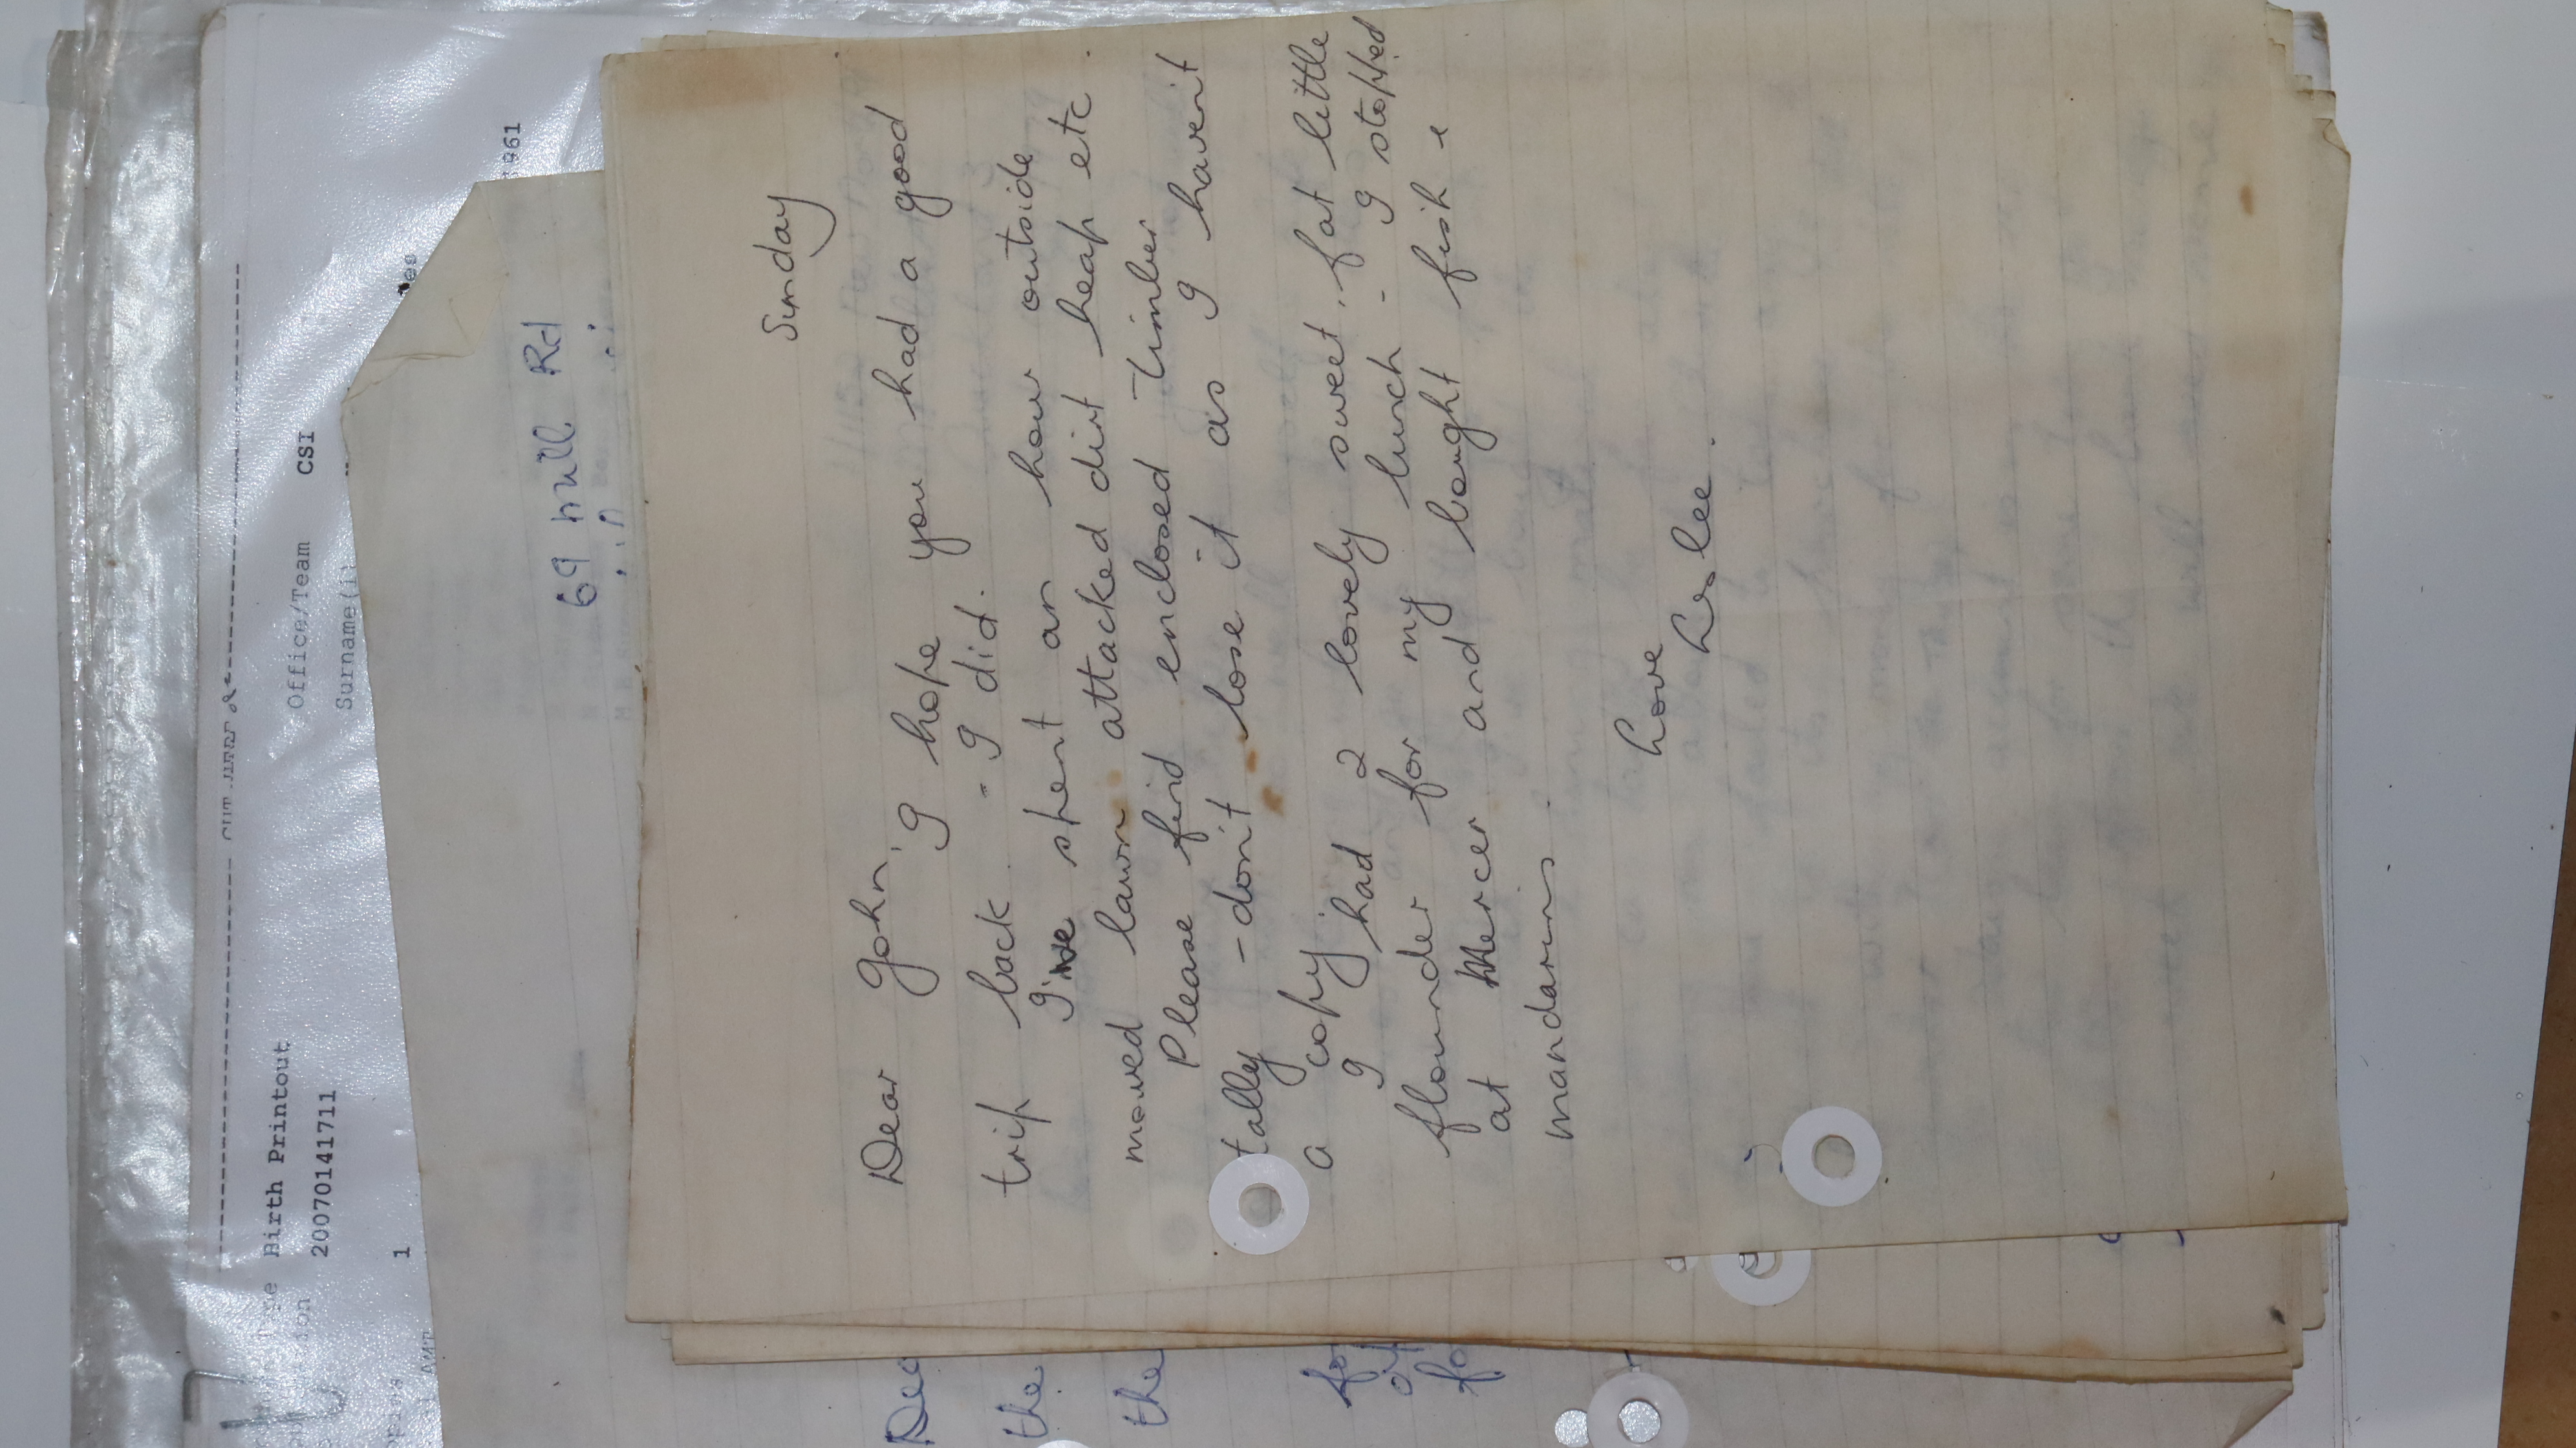 Office/Team CSI
Birth Printout
Surname(1)
20070141711
1
69 mill Rd
Sunday
Dear John,
I hope you had a good
trip back - I did.
I've spent an hour outside
mowed lawn attacked dirt heap etc.
Please find enclosed timber
tally - don't lose it as I haven't
a copy.
I had 2 lovely sweet, fat little
flounder for my lunch - I stopped
at Mercer and bought fish &
mandarins.
Love
Leslee.
the
the